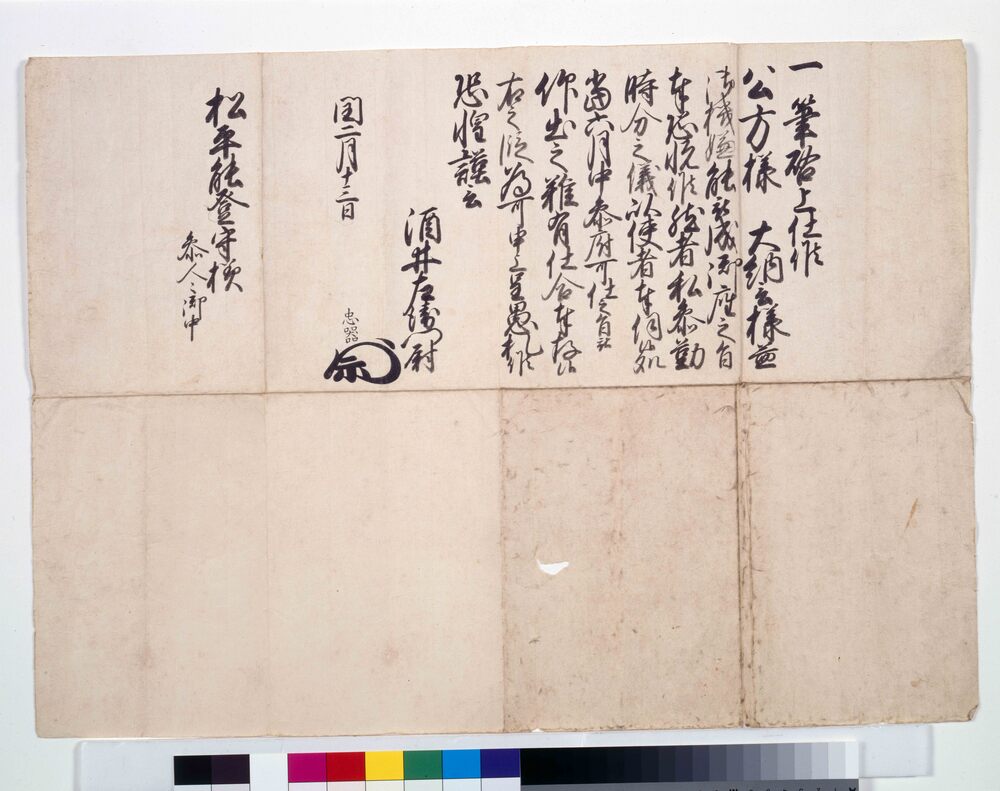 一筆啓上仕候
公方様 大納言様益
御機嫌能被成御座之旨
奉恐悦候然者私参勤
時分之儀以使者奉伺候処
当六月中参府可仕之旨被
仰出之難有仕合奉存候
右之段為可申上呈愚札候
恐惶謹言
酒井左衛門尉
忠器
閏二月十三日
松平能登守様
参人々御中